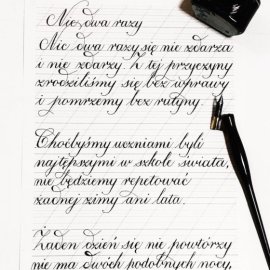 Nic dwa razy
Nic dwa razy się nie zdarza
i nie zdarzy. Z tej przyczyny
zrodziliśmy się bez wprawy
i pomrzemy bez rutyny.
Choćbyśmy uczniami byli
najtępszymi w szkole świata,
nie będziemy repetować
żadnej zimy ani lata.
Żaden dzień się nie powtórzy
nie ma dwóch podobnych nocy,